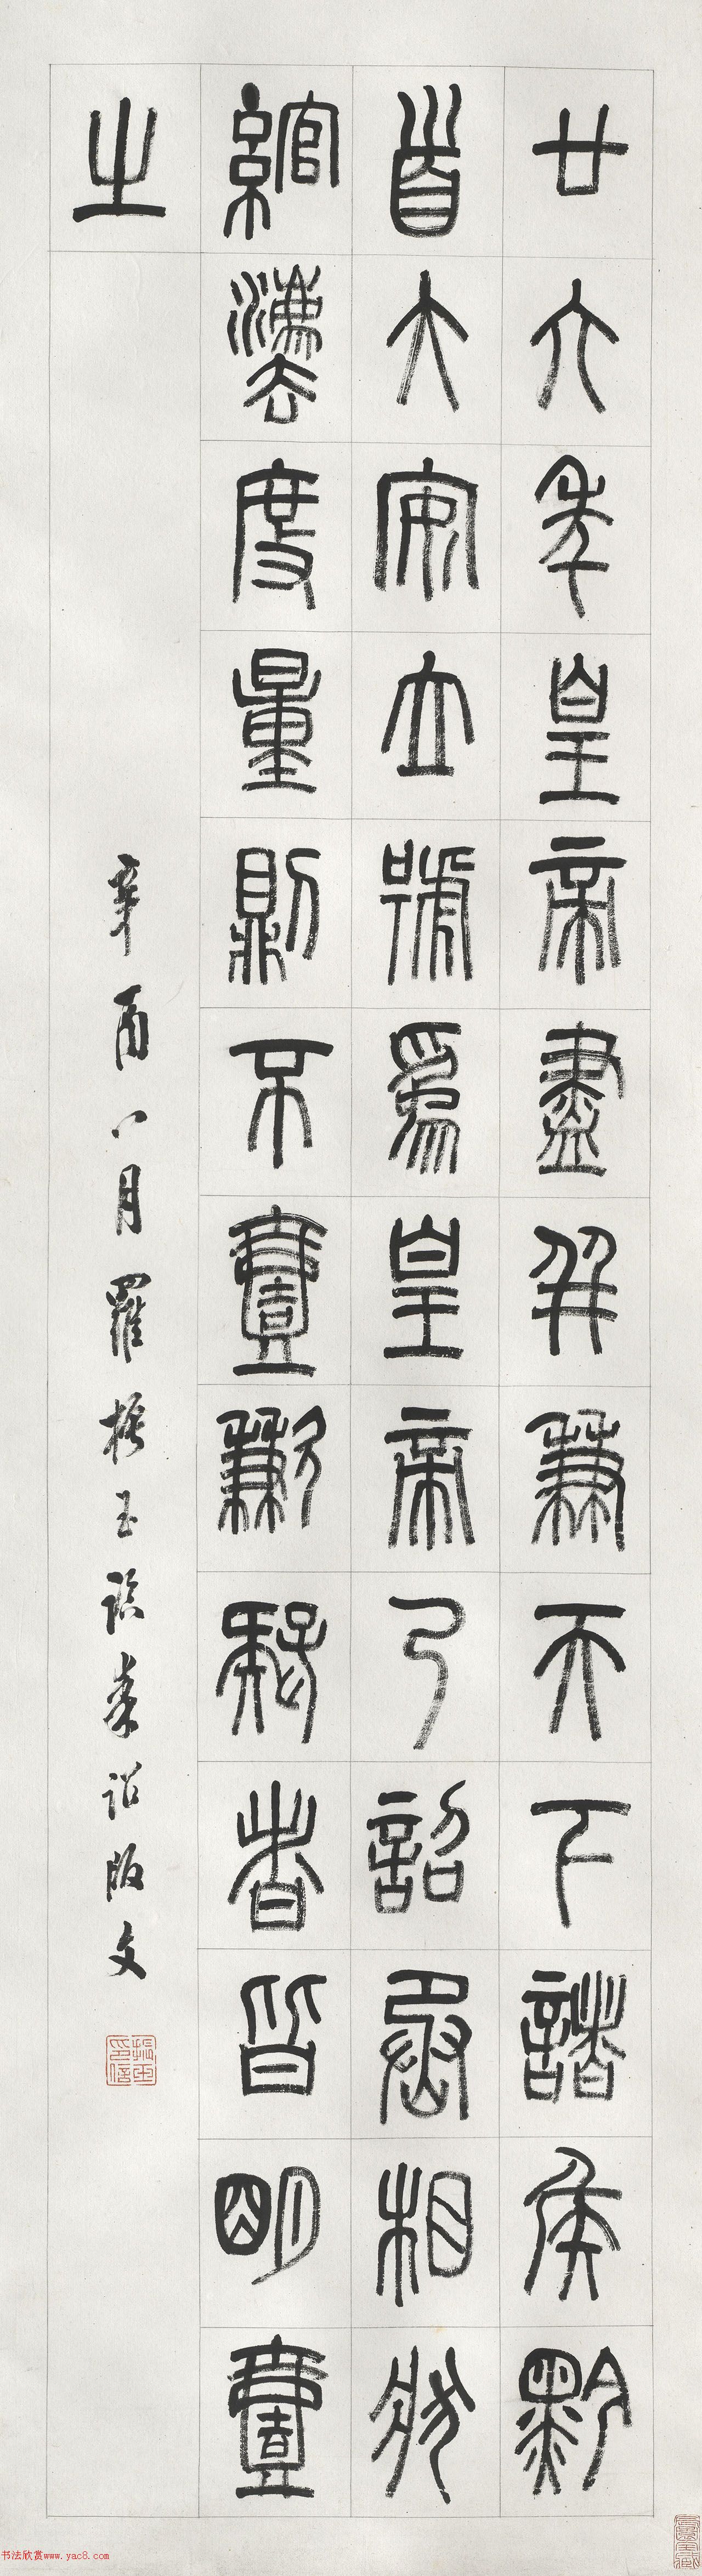 廿六年皇帝盡并兼天下諸侯黔
首大安立號為皇帝乃詔丞相狀
綰灋度量則不壹歉疑者皆明壹
之
辛酉八月羅振玉臨秦詔版文
振玉印信
书法欣赏www.yac8.com